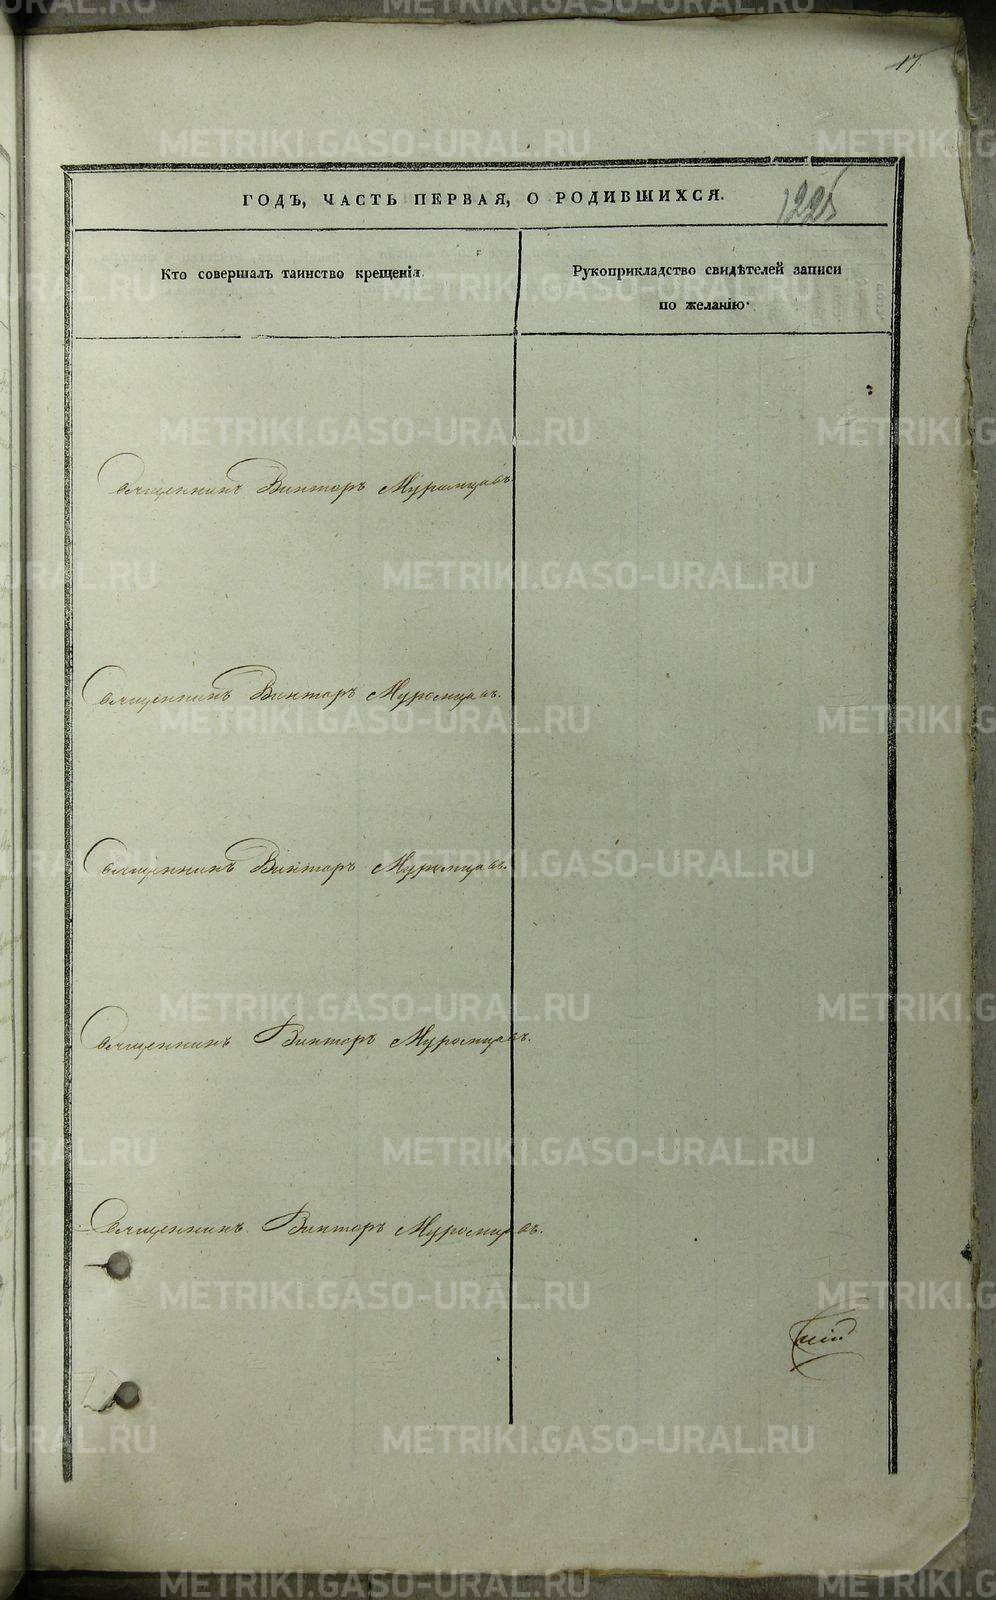 17
ГОДЪ, ЧАСТЬ ПЕРВАЯ, О РОДИВШИХСЯ.
1225
Кто совершалъ таинство крещенія.
Рукоприкладство свидѣтелей записи
по желанію.
Священникъ Викторъ Муромцовъ.
Священникъ Викторъ Муромцовъ.
Священникъ Викторъ Муромцовъ.
Священникъ Викторъ Муромцовъ.
Священникъ Викторъ Муромцовъ.
METRIKI.GASO-URAL.RU